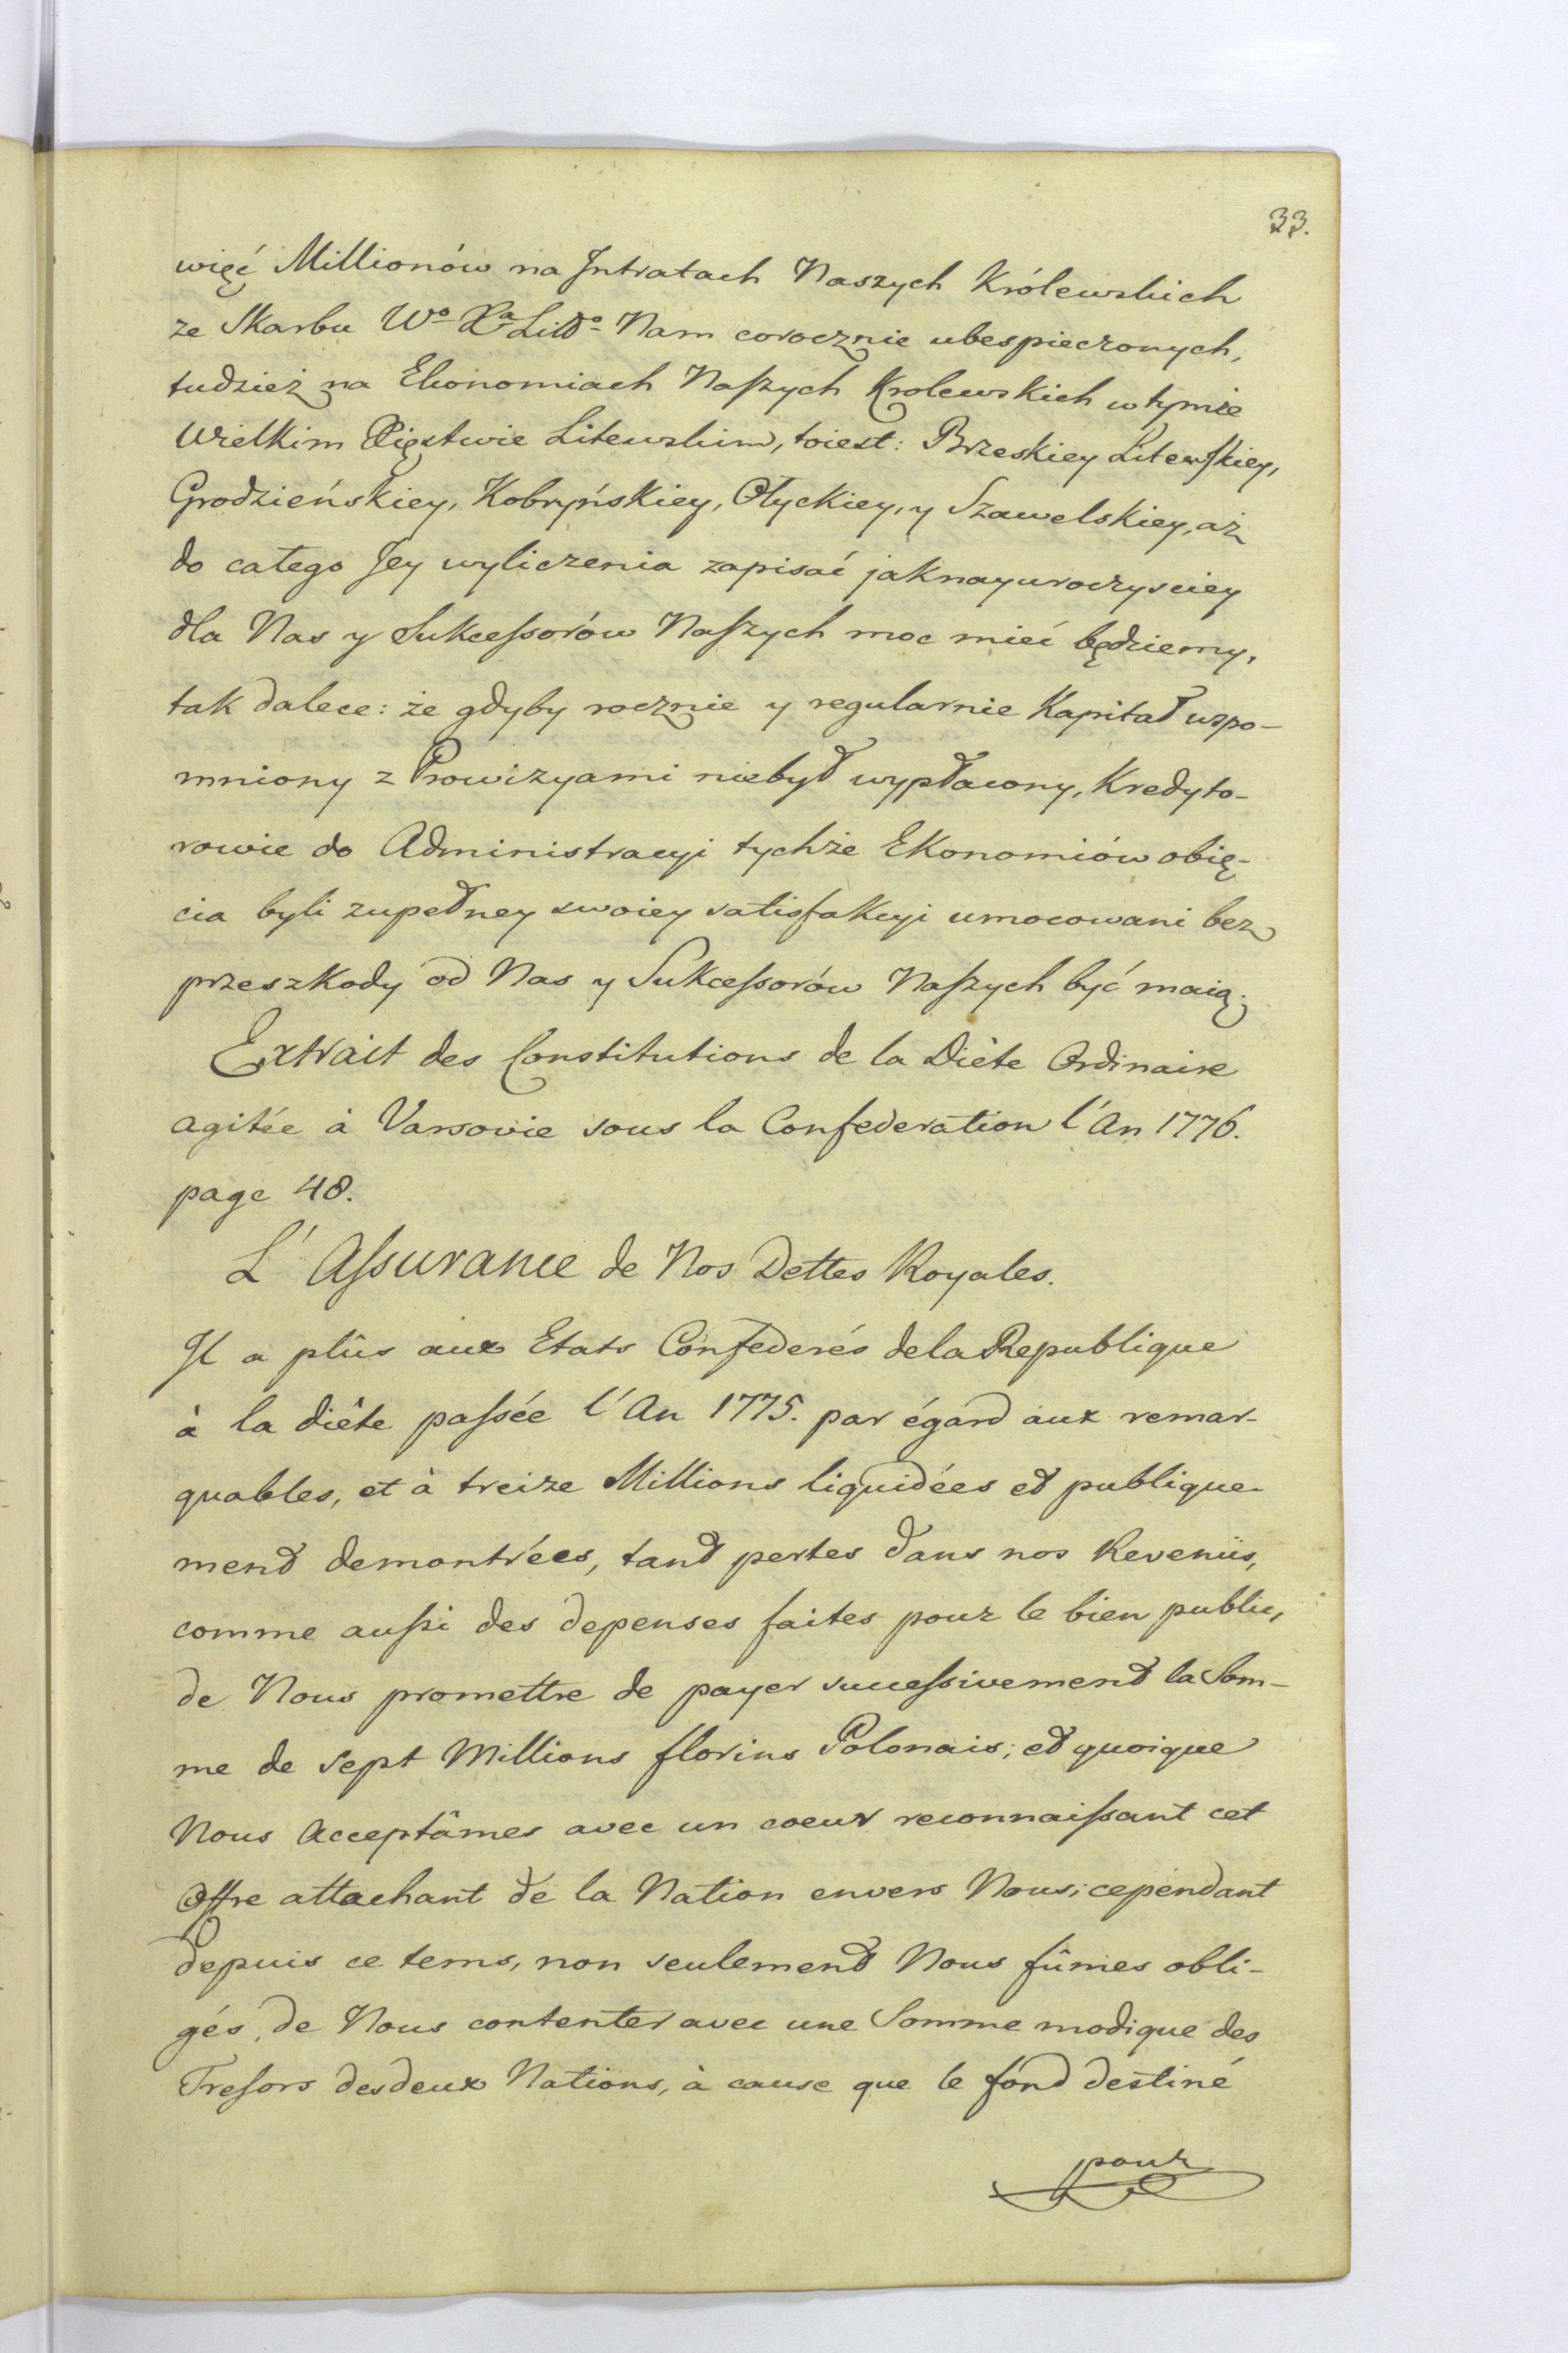 33.
więć Millionów na Jntratach Naszych Królewskich
ze Skarbu Wo Xa Litdo Nam corocznie ubespieczonych,
tudzież na Ekonomiach Naſzych Krolewskich w tymże
Wielkim Xięstwie Litewskim, toiest: Brzeskiey Litewſkiey,
Grodzieńskiey, Kobryńskiey, Olyckiey, y Szawelskiey, aż
do całego Jey wyliczenia zapisać jaknayuroczysciey
dla Nas y Sukceſsorów Naſzych moc mieć będziemy,
tak dalece: że gdyby rocznie y regularnie Kapitał wspo-
mniony z Prowizyami niebył wypłacony, Kredyto-
rowie do Administracyi tychże Ekonomiów obię-
cia byli zupełney swoiey satisfakcyi umocowani bez
przeszkody od Nas y Sukceſsorów Naſzych być maią.
Extrait des Constitutions de la Diète Ordinaire
agitée à Varsovie sous la Confederation l'An 1776.
page 48.
L'Aſsurance de Nos Dettes Royales.
Jl a plûs aux Etats Confederés dela Republique
à la diête paſsée l'An 1775. par égard aux remar-
quables, et à treize Millions liquidées et publique-
ment demontrées, tant pertes dans nos Revenüs,
comme auſsi des depenses faites pour le bien public,
de Nous promettre de payer succeſsivement la Som-
me de sept Millions florins Polonais; et quoique
Nous Acceptâmes avec un coeur reconnaiſsant cet
Offre attachant de la Nation envers Nous; cependant
depuis ce tems, non seulement Nous fûmes obli-
gés, de Nous contenter avec une Somme modique des
Treſors des deux Nations, à cause que le fond destiné
pour